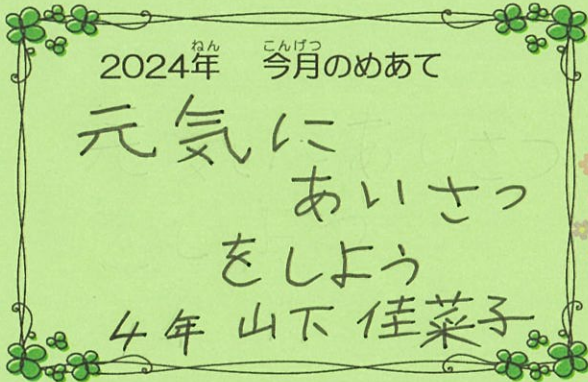 2024年 今月のめあて
元気に
あいさつ
をしよう
4年 山下 佳菜子